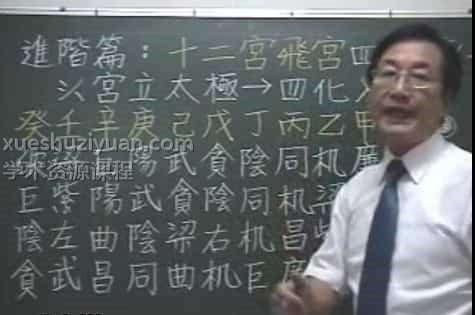 進階篇：十二宮飛宮四
宮立太極→四化
癸壬辛庚己戊丁丙乙甲
xueshuziyuan.com
陽武貪陰同机廉
学术资源课程
巨紫陽武貪陰同机梁
陰左曲陰梁右机昌紫
貪武昌同曲机巨廉